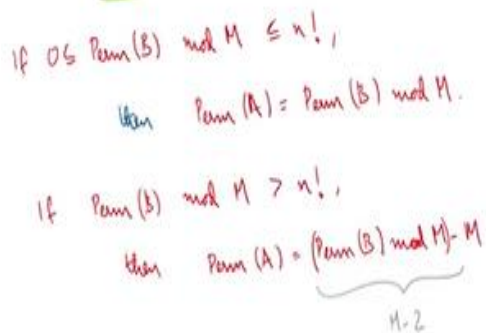 If 0≤ Perm(B) mod M ≤ n!,
then Perm(A) = Perm(B) mod M.
If Perm(B) mod M > n!,
then Perm(A) = (Perm(B) mod M) - M
M-2